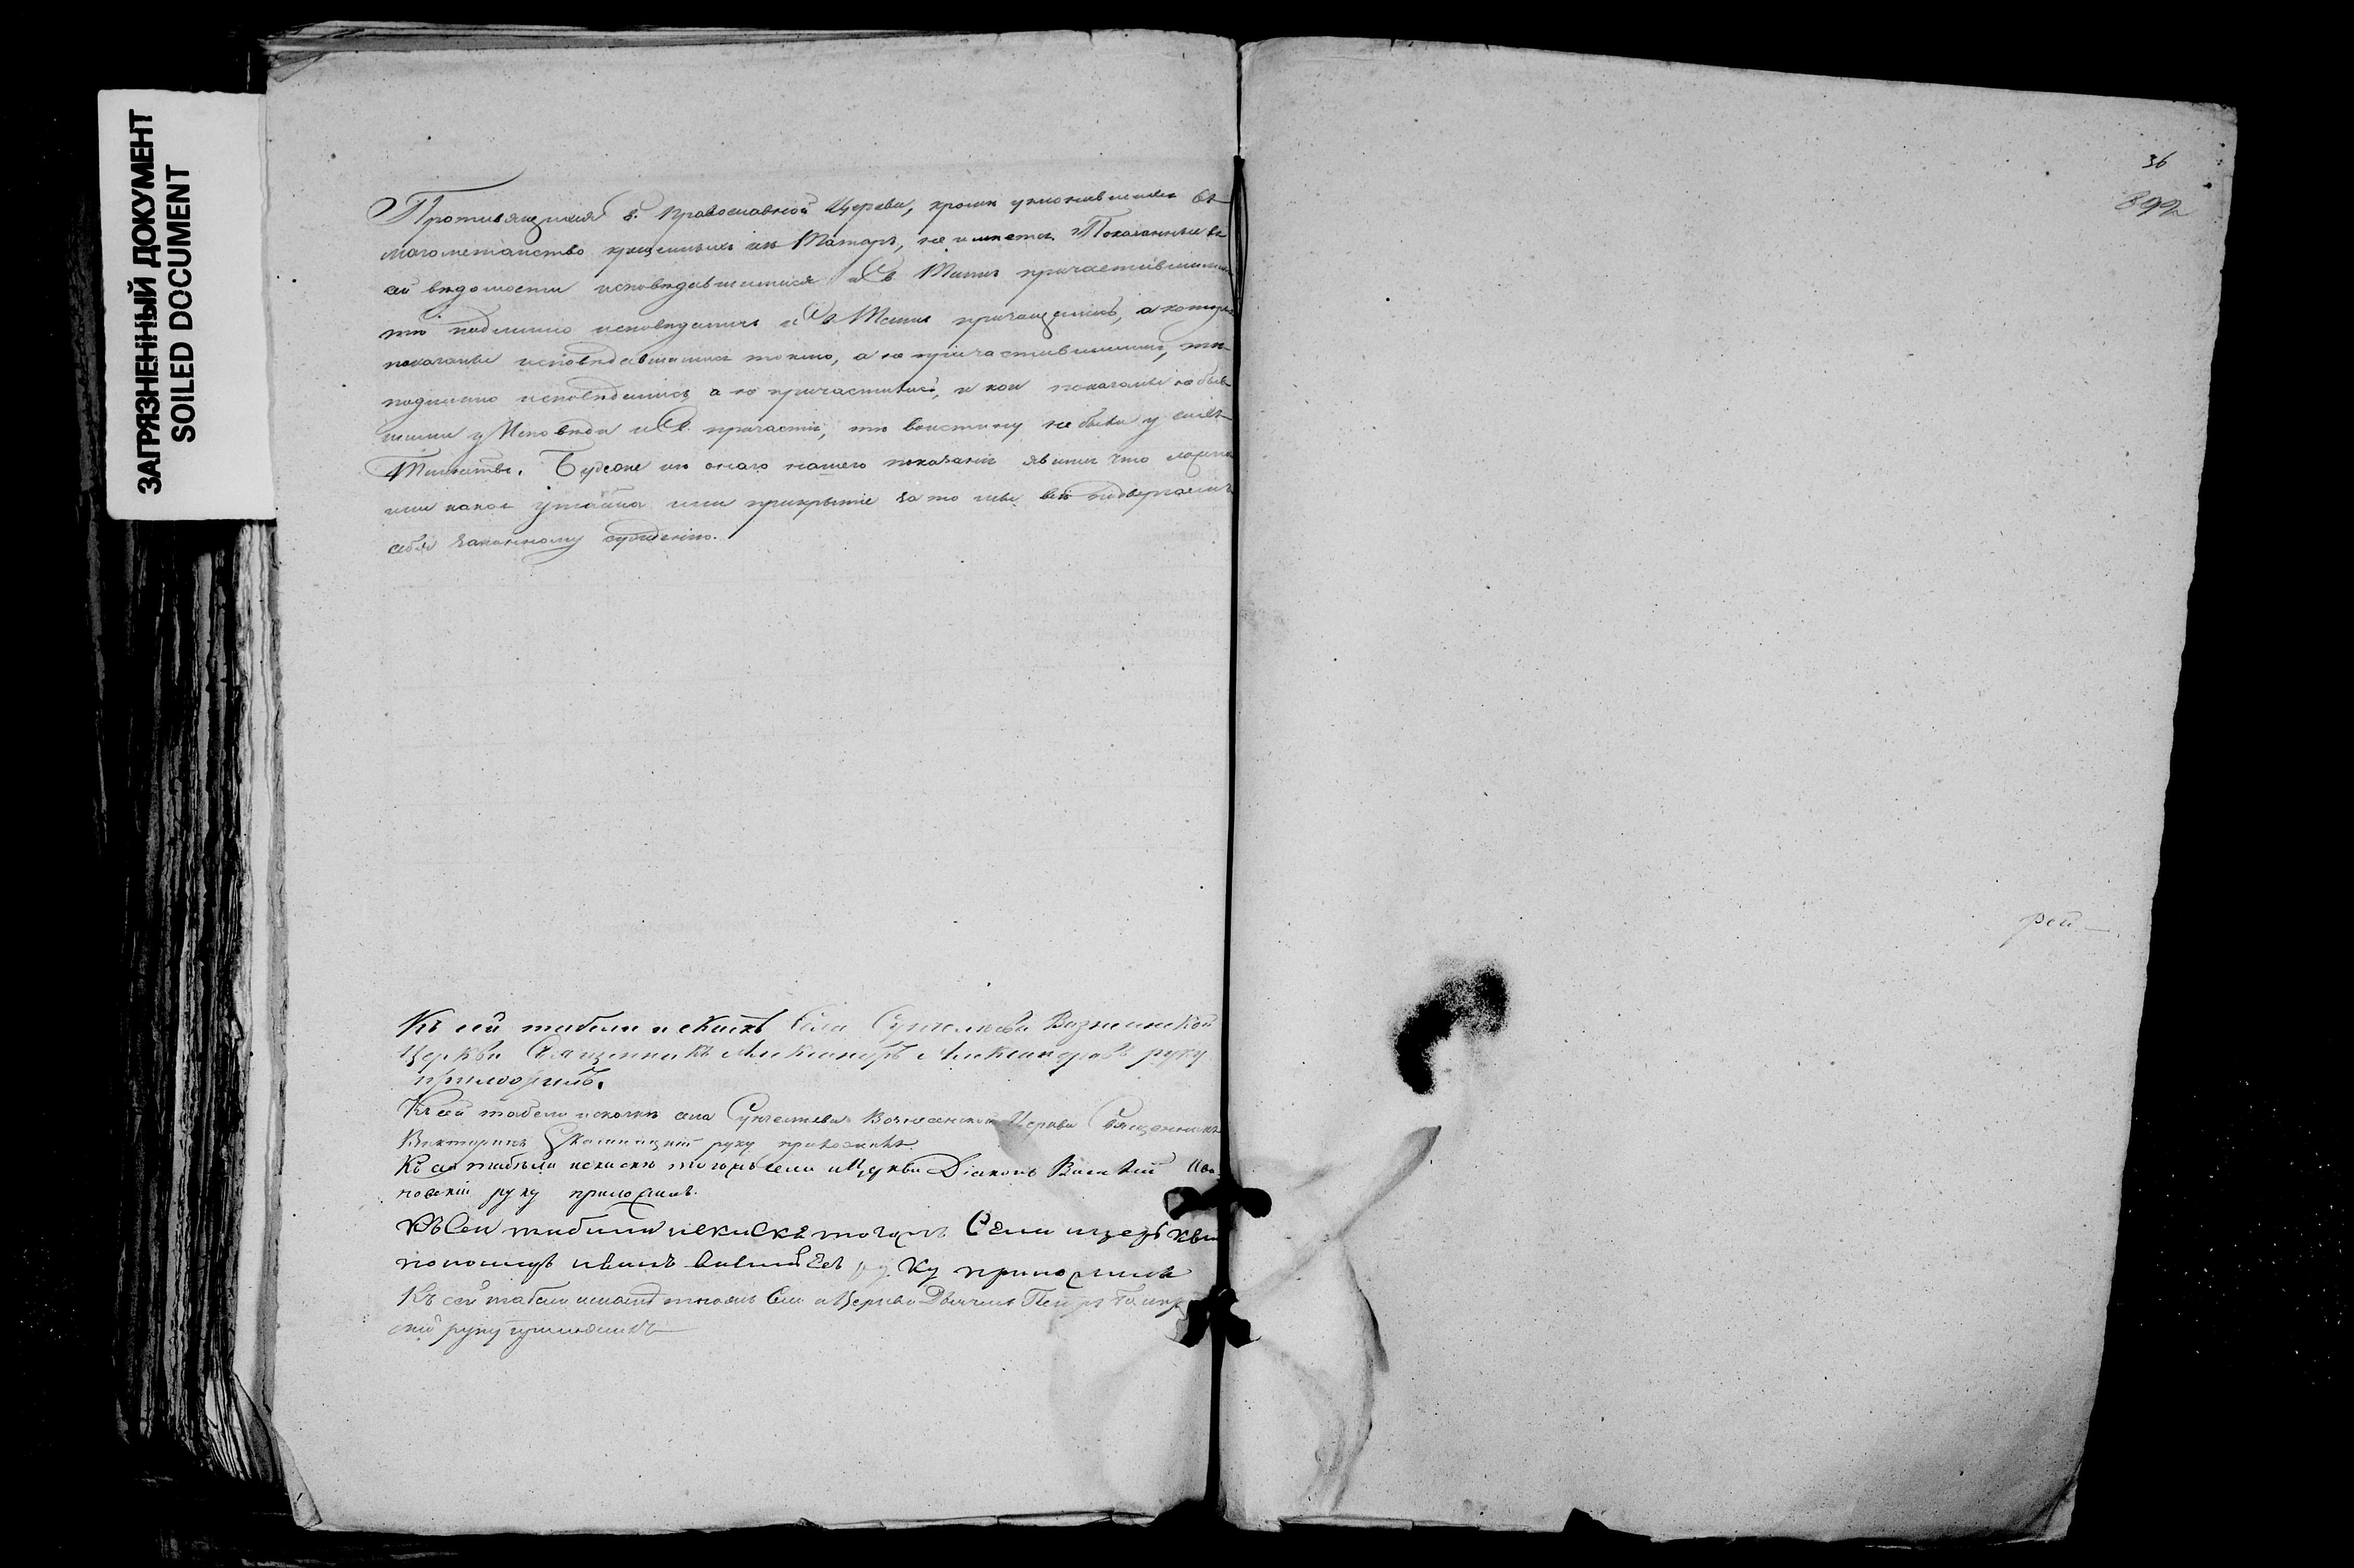 ЗАГРЯЗНЕННЫЙ ДОКУМЕНТ
SOILED DOCUMENT
Противящихся С. Православной Церкви, кромѣ уклонившихся въ
магометанство крещеныхъ изъ Татаръ, не имѣется. Показанные въ
сей вѣдомости исповѣдавшимися и Св. Таинъ причастившимися
тѣ подлинно исповѣдались и Св. Таинъ причащались, а которые
показаны исповѣдавшимися токмо, а не причастившимися, тѣ
подлинно исповѣдались, а не причастились, и кои показаны не быв-
шими у Исповѣди и Св. причастія, тѣ воистину не были у сихъ
Таинствъ. Буде же изъ онаго нашего показанія явится что ложно
или какая утайка или прикрытіе за то мы всѣ подвергаемъ
себя законному сужденію.
Къ сей табели и сказкѣ села Вознесенской
Церкви Священникъ Александръ Александровъ руку
приложилъ.
Къ сей табели и сказкѣ села Вознесенской Церкви Священникъ
Викторинъ руку приложилъ.
Къ сей табели и сказкѣ тогожъ села и Церкви Діаконъ Василій
руку приложилъ.
Къ сей табели и сказкѣ тогожъ села и церкви
пономарь Иванъ руку приложилъ
Къ сей табели и сказкѣ тогожъ села и Церкви Дьячекъ Петръ
скій руку приложилъ
36
892
рей